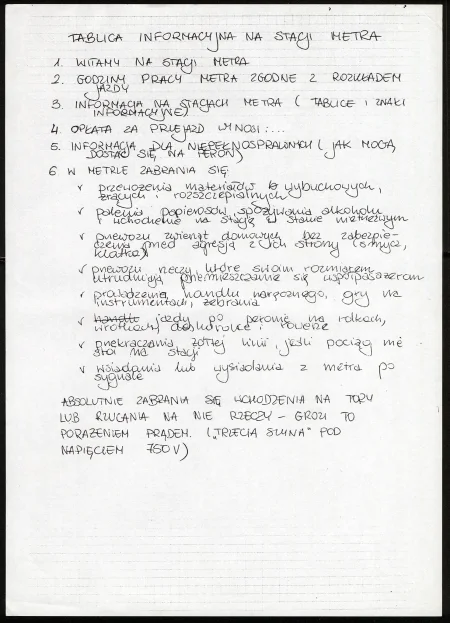 TABLICA INFORMACYJNA NA STACJI METRA
1. WITAMY NA STACJI METRA
2. GODZINY PRACY METRA ZGODNE Z ROZKŁADEM
JAZDY
3. INFORMACJA NA STACJACH METRA (TABLICE I ZNAKI
INFORMACYJNE)
4. OPŁATA ZA PRZEJAZD WYNOSI:...
5. INFORMACJA DLA NIEPEŁNOSPRAWNYCH (JAK MOGĄ
DOSTAĆ SIĘ NA PERON)
6 W METRZE ZABRANIA SIĘ
v przewożenia materiałów wybuchowych,
żrących i rozszczepialnych
v palenia papierosów, spożywania alkoholu
i wchodzenie na stację w stanie nietrzeźwym
v przewozu zwierząt domowych bez zabezpie-
czenia przed agresją z ich strony (smycz,
klatka)
v przewozu rzeczy, które swoim rozmiarem
utrudniają przemieszczanie się współpasażerom
v prowadzenia handlu naręcznego, gry na
instrumentach, żebrania
v handlu jazdy po peronie na rolkach,
wrotkach, deskorolce i rowerze
v przekraczania żółtej linii, jeśli pociąg nie
stoi na stacji
v wsiadania lub wysiadania z metra po
sygnale
ABSOLUTNIE ZABRANIA SIĘ WCHODZENIA NA TORY
LUB RZUCANIA NA NIE RZECZY – GROZI TO
PORAŻENIEM PRĄDEM. („TRZECIA SZYNA" POD
NAPIĘCIEM 750V)